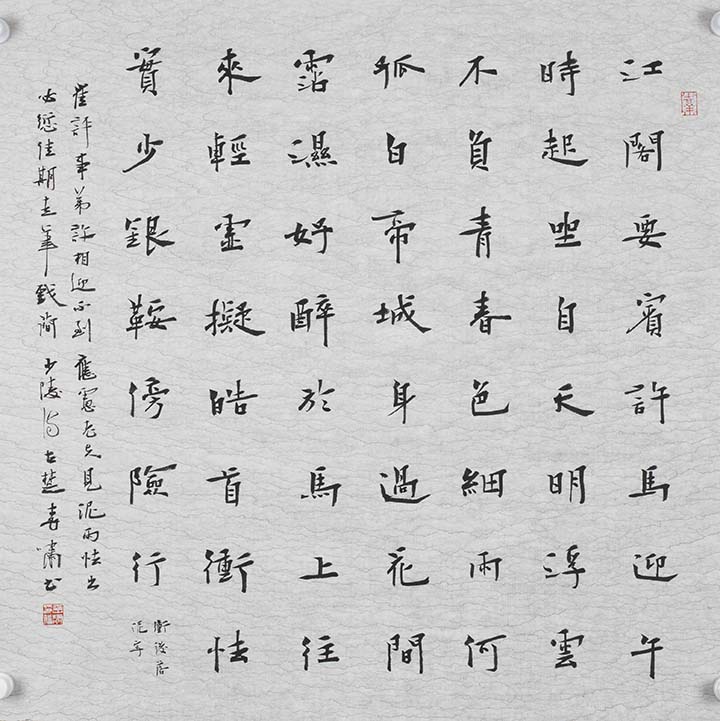 江閣要賓許馬迎午
時起坐自天明浮雲
不負青春色細雨何
孤白帝城身過花間
霑濕好醉於馬上往
來輕虛擬皓首衝怯
實少銀鞍傍險行
衝後落
泥字
崔評事弟許相迎不到應慮老夫見泥雨怯出
必愆佳期走筆戲簡 少陵詩 古燕春嘯書